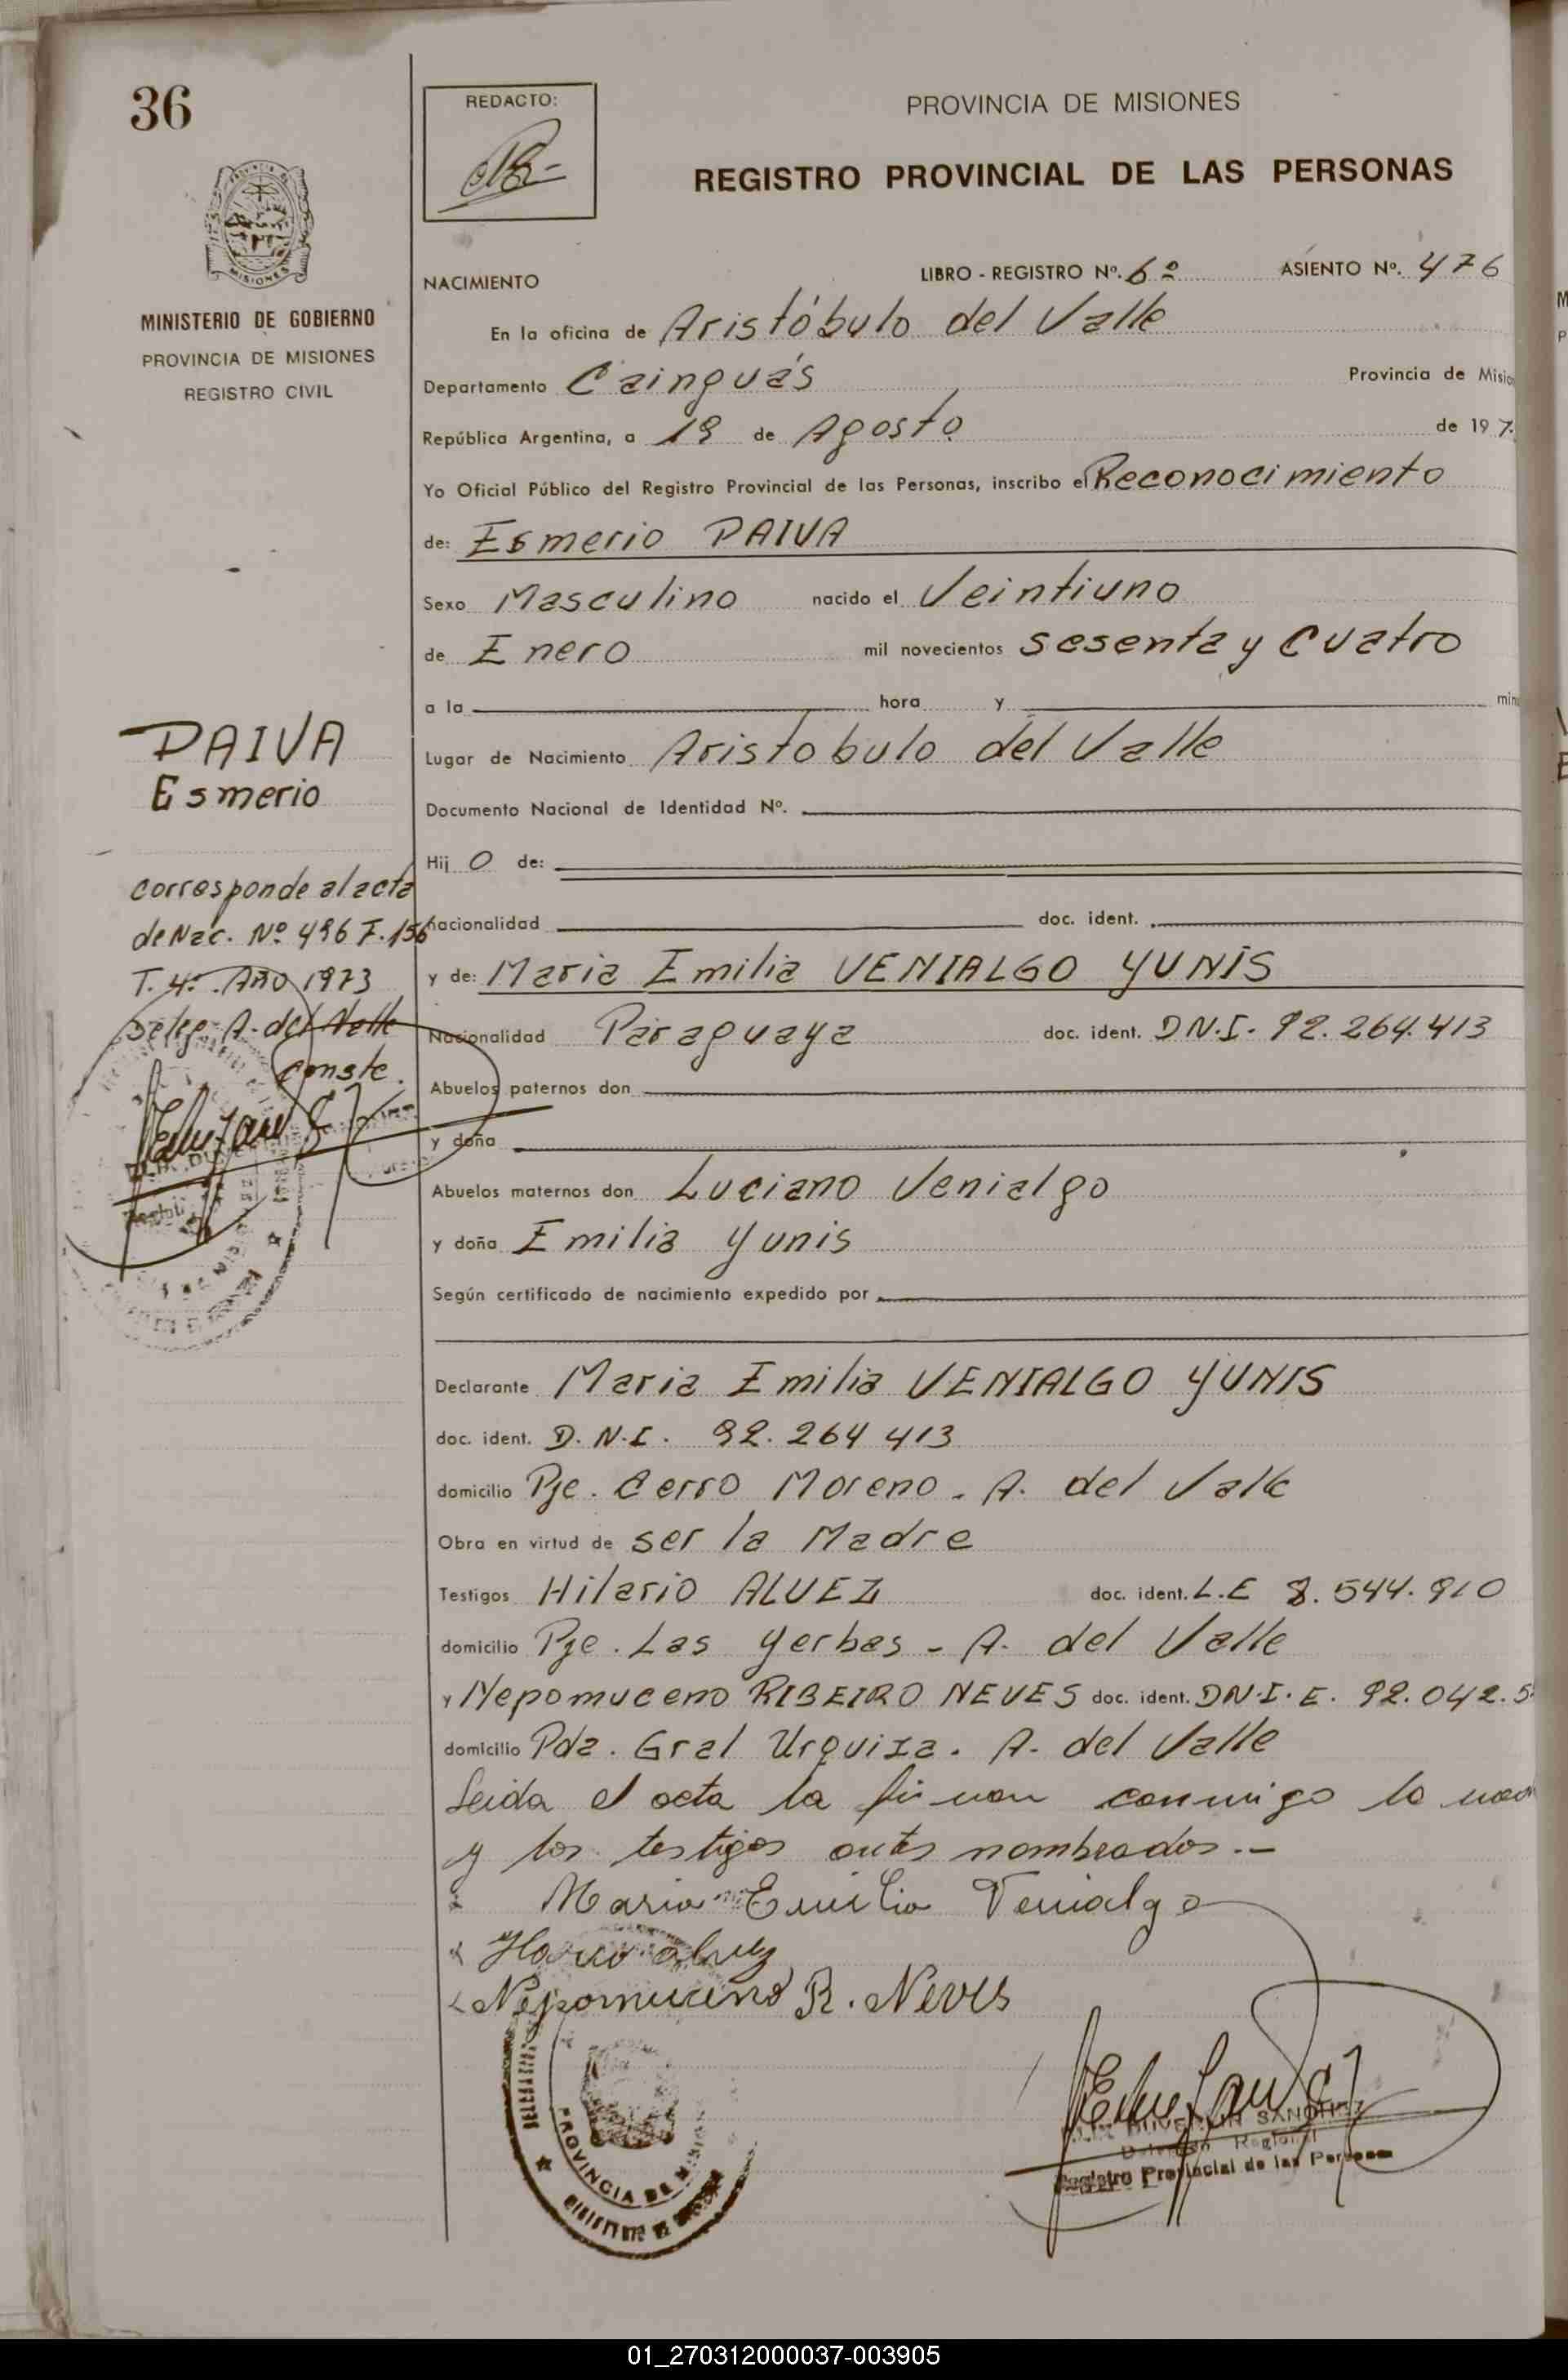 36
REDACTO:
PROVINCIA DE MISIONES
REGISTRO PROVINCIAL DE LAS PERSONAS
MISIONES
MINISTERIO DE GOBIERNO
PROVINCIA DE MISIONES
REGISTRO CIVIL
NACIMIENTO LIBRO - REGISTRO Nº. 6º ASIENTO Nº. 476
En la oficina de Aristóbulo del Valle
Departamento Cainguás Provincia de Misio
República Argentina, a 19 de Agosto de 197
Yo Oficial Público del Registro Provincial de las Personas, inscribo el Reconocimiento
de: Esmerio PAIVA
Sexo Masculino nacido el Veintiuno
de Enero mil novecientos sesenta y cuatro
a la hora y minu
Lugar de Nacimiento Aristobulo del Valle
Documento Nacional de Identidad Nº.
Hij o de:
nacionalidad doc. ident.
y de: Maria Emilia VENIALGO YUNIS
Nacionalidad Paraguaya doc. ident. D.N.I. 92.264.413
Abuelos paternos don
y doña
Abuelos maternos don Luciano Venialgo
y doña Emilia Yunis
Según certificado de nacimiento expedido por
Declarante Maria Emilia VENIALGO YUNIS
doc. ident. D.N.I. 92.264 413
domicilio Pje. Cerro Moreno. A. del Valle
Obra en virtud de ser la Madre
Testigos Hilario ALVEZ doc. ident. L.E 8.544.910
domicilio Pje. Las Yerbas - A. del Valle
y Nepomuceno RIBEIRO NEVES doc. ident. D.N.I.E. 92.042.5
domicilio Pda. Gral Urquiza. A. del Valle
Leida el acta la firman conmigo la
y los testigos antes nombrados.-
Maria Emilia Venialgo
Nepomuceno R. Neves
PAIVA
Esmerio
corresponde al acta
de Nac. Nº 496 F. 156
T. 4º. Año 1973
Deleg. A. del Valle
conste.
PROVINCIA DE
SANCHEZ
Regional
Registro Provincial de las Personas
01_270312000037-003905